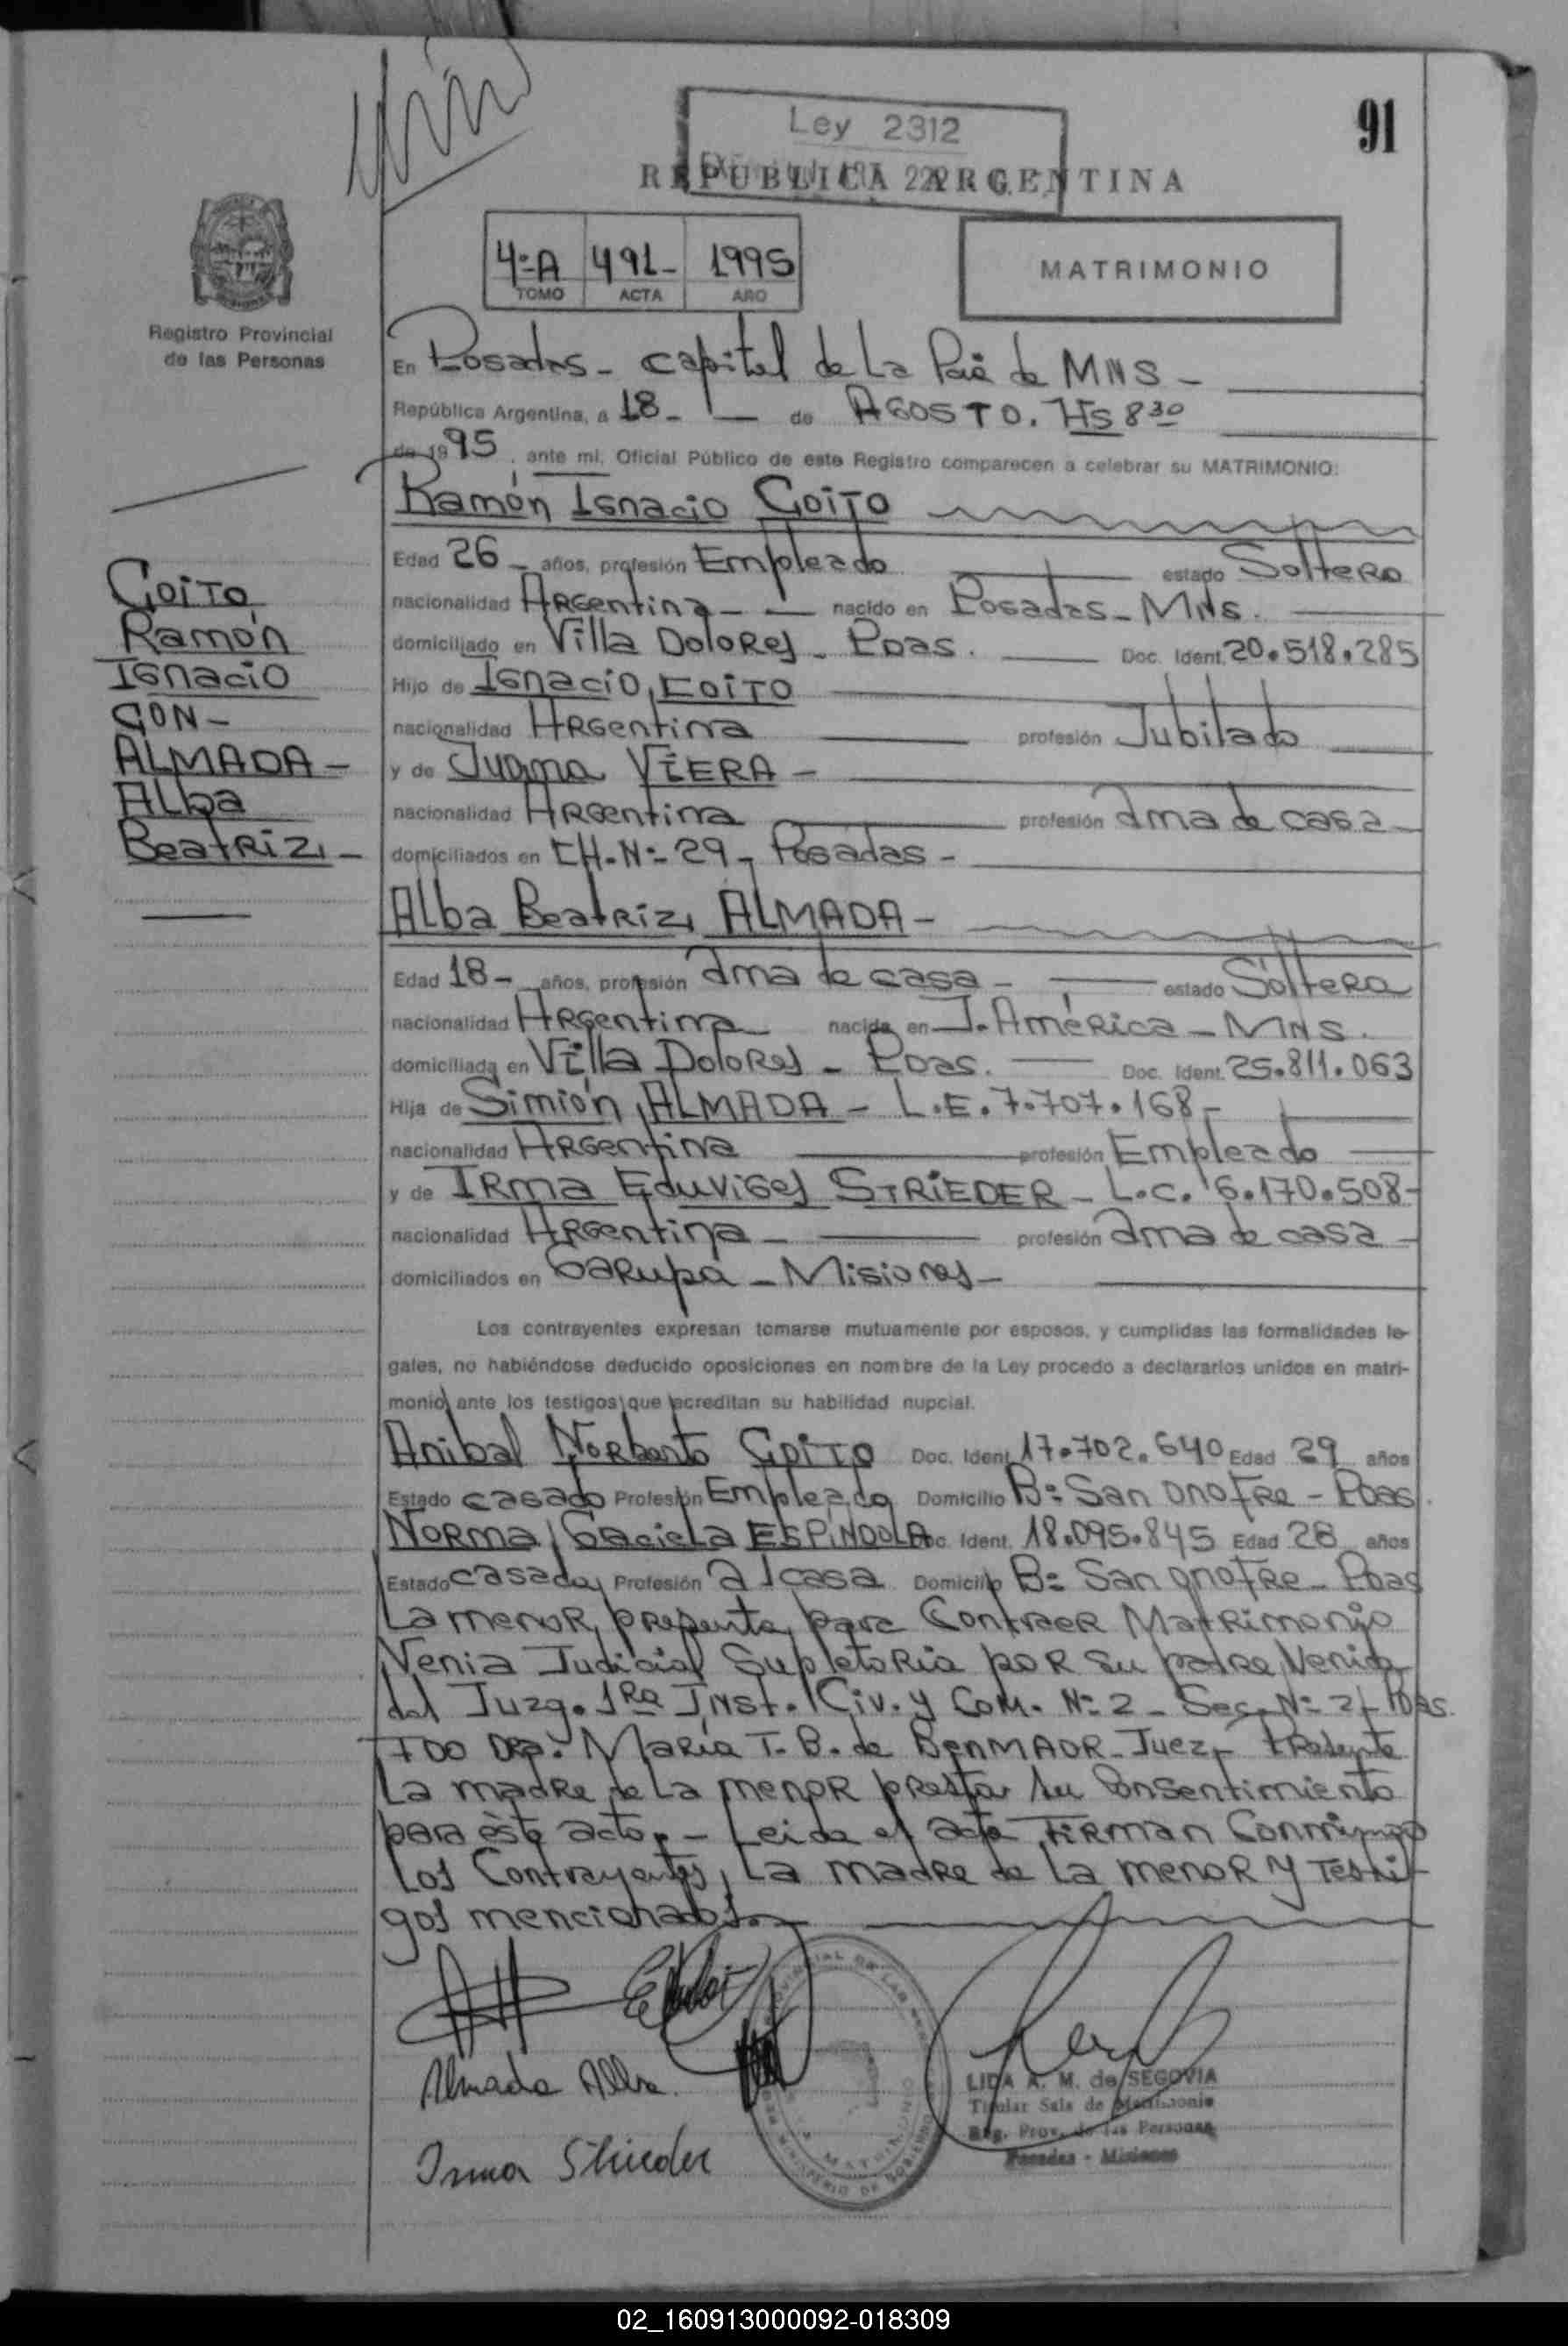 91
Ley 2312
REPUBLICA ARGENTINA
4º A 491- 1995
TOMO ACTA AÑO
MATRIMONIO
Registro Provincial
de las Personas
En Posadas - capital de La Pcia de MNS -
República Argentina, a 18 - — de AGOSTO. Hs 8 30
de 1995, ante mi, Oficial Público de este Registro comparecen a celebrar su MATRIMONIO:
Ramón Ignacio COITO
Edad 26 - años, profesión Empleado estado Soltero
nacionalidad Argentina - — nacido en Posadas - MNS.
domiciliado en Villa Dolores - Pdas. Doc. Ident. 20.518.285
Hijo de Ignacio, COITO
nacionalidad Argentina profesión Jubilado
y de Juana VIERA -
nacionalidad Argentina profesión ama de casa -
domiciliados en CH. Nº 29 - Posadas -
COITO
Ramón
Ignacio
CON -
ALMADA -
Alba
Beatriz, -
Alba Beatriz, ALMADA -
Edad 18 - años, profesión ama de casa - estado Soltera
nacionalidad Argentina nacida en J. América - MNS.
domiciliada en Villa Dolores - Pdas. Doc. Ident. 25.811.063
Hija de Simión, ALMADA - L.E. 7.707.168 -
nacionalidad Argentina profesión Empleado
y de Irma Eduviges STRIEDER - L.C. 6.170.508 -
nacionalidad Argentina - profesión ama de casa -
domiciliados en Garupa - Misiones -
Los contrayentes expresan tomarse mutuamente por esposos, y cumplidas las formalidades le-
gales, no habiéndose deducido oposiciones en nombre de la Ley procedo a declararlos unidos en matri-
monio ante los testigos que acreditan su habilidad nupcial.
Anibal Norberto COITO Doc. Ident. 17.702.640 Edad 29 años
Estado casado Profesión Empleado Domicilio Bº San Onofre - Pdas.
Norma, Gaciela ESPINDOLA Doc. Ident. 18.095.845 Edad 28 años
Estado casada, Profesión a/casa Domicilio Bº San Onofre - Pdas
La menor, presenta, para Contraer Matrimonio
Venia Judicial Supletoria por su padre, Venida
del Juzg. 1ra Inst. Civ. y Com. Nº 2 - Sec. Nº 2 - Pdas.
FDO Dra. María T. B. de BenMAOR - Juez, Presente
La madre de La menor presta su Consentimiento
para éste acto. - Leida el acta, Firman Conmigo
Los Contrayentes, La madre de La menor y Testi-
gos mencionados. -
Almada Alba.
Irma Strieder
LIDA A. M. de SEGOVIA
Titular Sala de Matrimonio
Reg. Prov. de las Personas
Posadas - Misiones
02_160913000092-018309